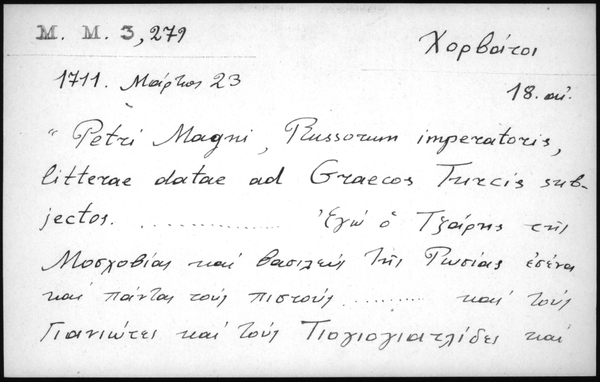 M. M. 3, 279
Χορβάτοι
1711. Μάρτιος 23
18. αἰ.
" Petri Magni, Russorum imperatoris,
litterae datae ad Graecos Turcis sub-
jectos. .............. Ἐγώ ὁ Τζάρης τῆς
Μοσχοβίας καί βασιλεύς τῆς Ρωσίας ἐσένα
καί πάντας τούς πιστούς ......... καί τούς
Γιανιώτες καί τούς καί